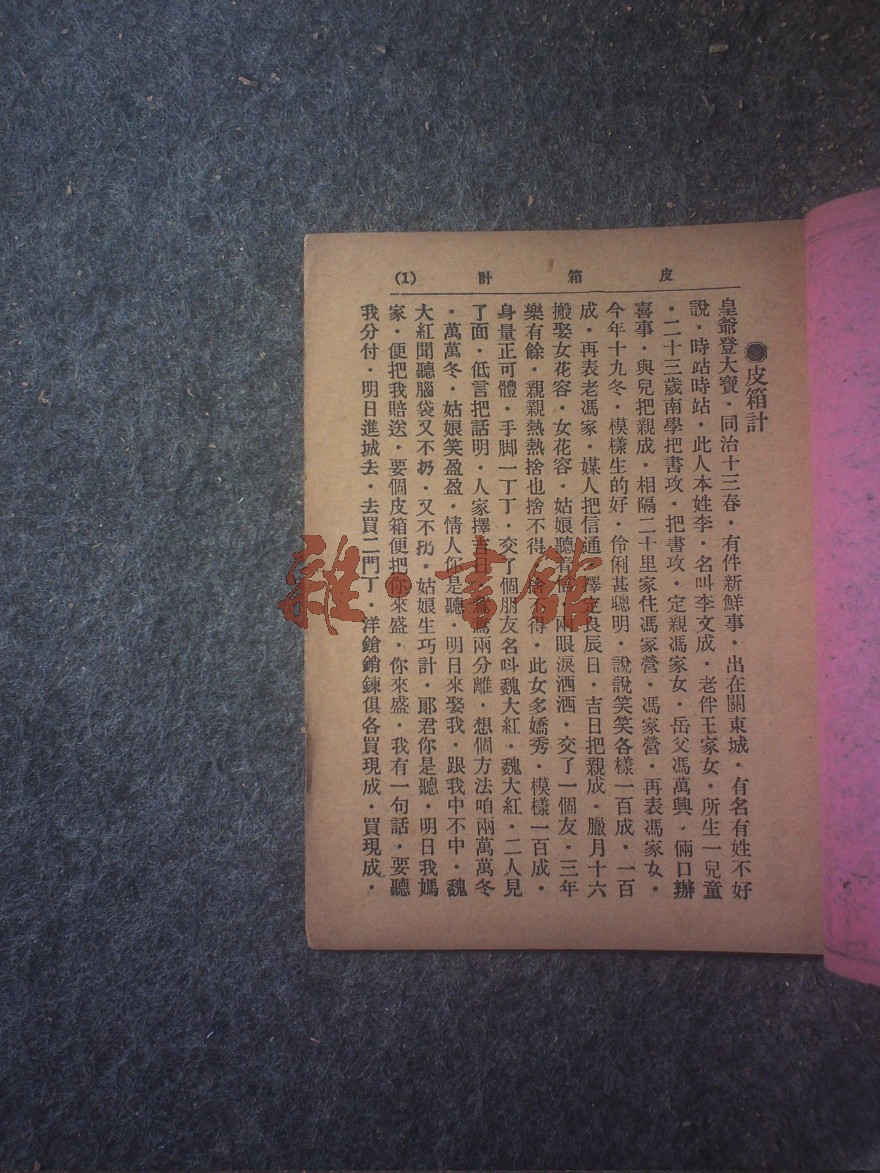 皮箱計 (1)
皮箱計
皇爺登大寶·同治十三春·有件新鮮事·出在關東城·有名有姓不好
說·時站時站·此人本姓李·名叫李文成·老伴王家女·所生一兒童
·二十三歲南學把書攻·把書攻·定親馮家女·岳父馮萬興·倆口辦
喜事·與兒把親成·相隔二十里家住馮家營·馮家營·再表馮家女·
今年十九冬·模樣生的好·伶俐甚聰明·說說笑笑各樣一百成·一百
成·再表老馮家·媒人把信通·擇定良辰日·吉日把親成·臘月十六
搬娶女花容·女花容·姑娘聽·兩眼淚洒洒·交了一個友·三年
樂有餘·親親熱熱捨也捨不得·捨不得·此女多嬌秀·模樣一百成·
身量正可體·手脚一丁丁·交了個朋友名叫魏大紅·魏大紅·二人見
了面·低言把話明·人家擇吉日·鴦兩分離·想個方法咱兩萬萬冬
·萬萬冬·姑娘笑盈盈·情人你是聽·明日來娶我·跟我中不中·魏
大紅聞聽腦袋又不扔·又不扔·姑娘生巧計·郎君你是聽·明日我媽
家·便把我賠送·要個皮箱便把你來盛·你來盛·我有一句話·要聽
我分付·明日進城去·去買二門丁·洋鎗銷鍊俱各買現成·買現成·
雜·書館